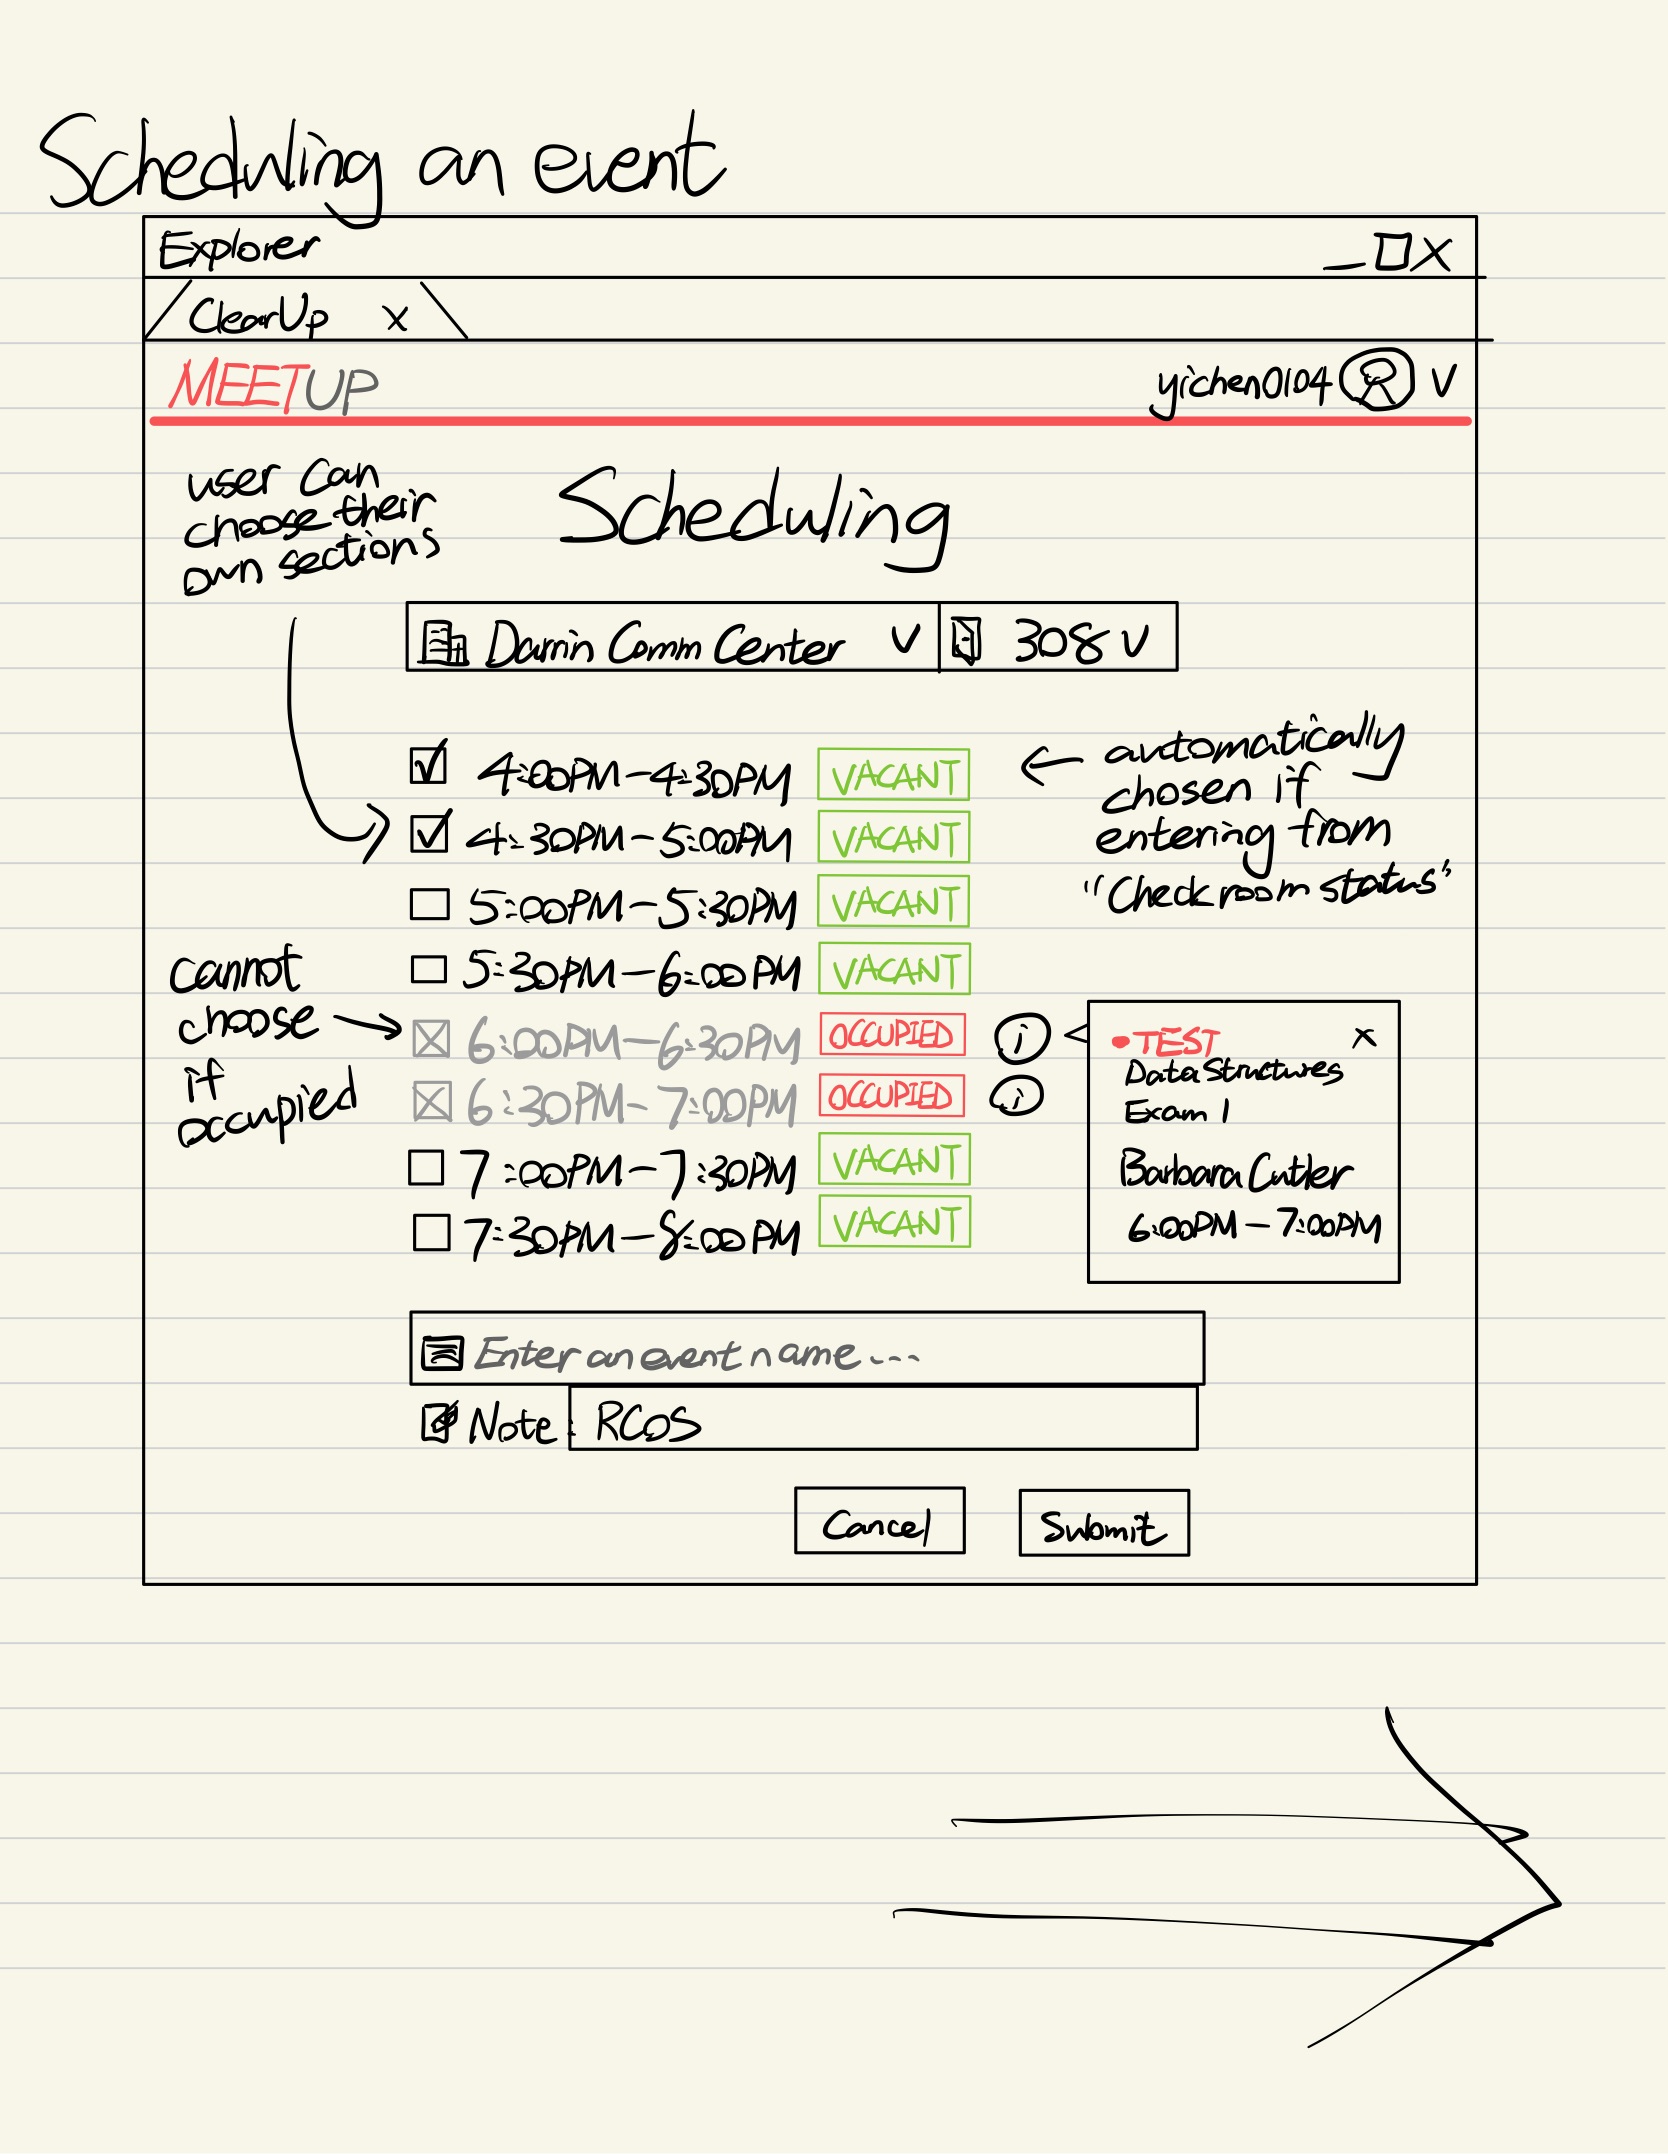 Scheduling an event
Explorer
ClearUp x
MEETUP
yichen0104
user can
choose their
own sections
Scheduling
Darrin Comm Center
308
4:00PM-4:30PM VACANT
4:30PM-5:00PM VACANT
5:00PM-5:30PM VACANT
5:30PM-6:00PM VACANT
6:00PM-6:30PM OCCUPIED i
6:30PM-7:00PM OCCUPIED i
7:00PM-7:30PM VACANT
7:30PM-8:00PM VACANT
← automatically
chosen if
entering from
"Check room status"
cannot
choose →
if
occupied
•TEST x
Data Structures
Exam 1
Barbara Cutler
6:00PM-7:00PM
Enter an event name...
Note: RCOS
Cancel
Submit